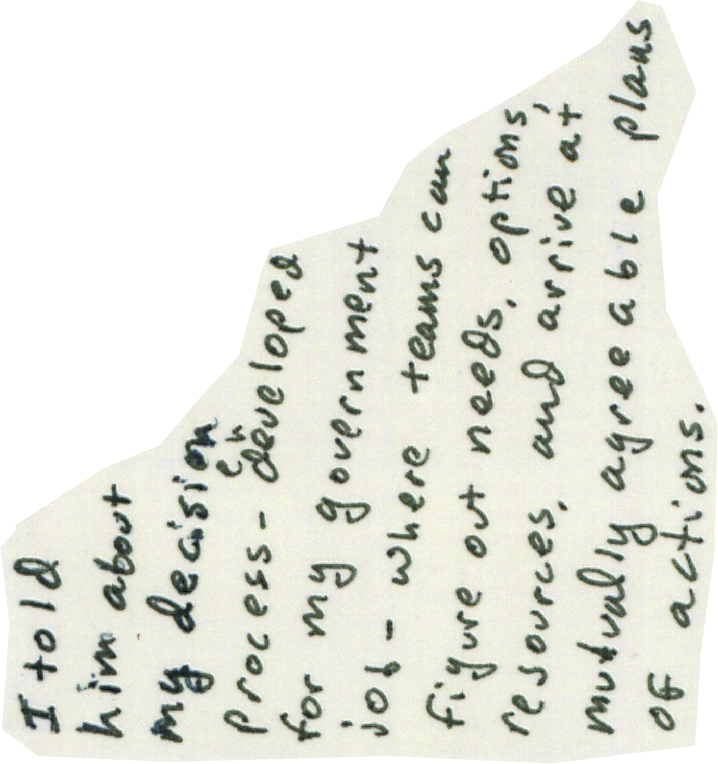 I told
him about
my decision
process - developed
for my government
job - where teams can
figure out needs, options,
resources, and arrive at
mutually agreeable plans
of actions.